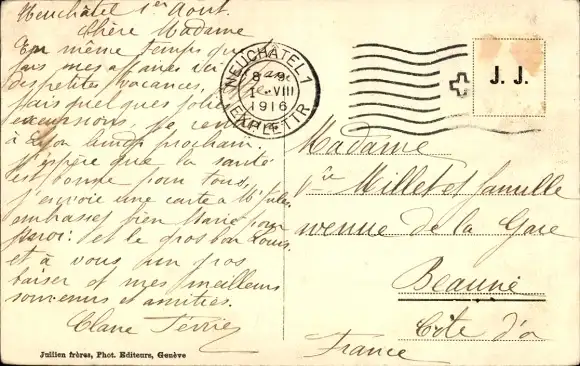 Neuchâtel 1er Août.
Chère Madame
En même temps que
fais mes affaires ici
petites vacances,
fais quelques jolies
excursions, Je
à lundi prochain.
J'espère que la santé
est bonne pour tous,
J'envoie une carte à Mr Jules
embrassez bien Marie pour
moi: et le gros bon Louis,
et à vous un gros
baiser et mes meilleurs
souvenirs et amitiés.
Jullien frères, Phot. Editeurs, Genève
NEUCHÂTEL 1
1 VIII
1916
EXP. LETTR.
J. J.
Madame
Vve Millet et famille
avenue de la Gare
Beaune
Côte d'or
France